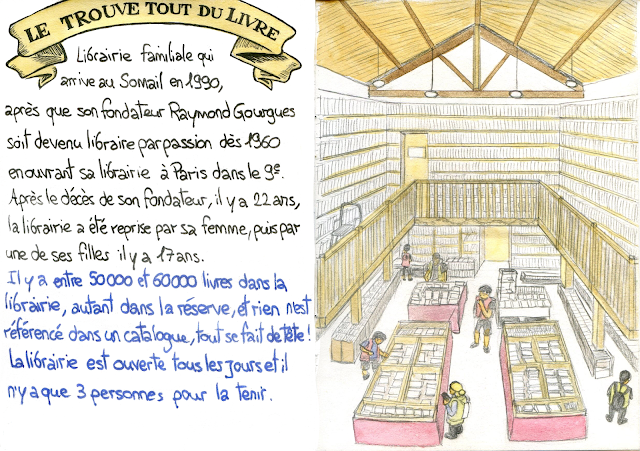 LE TROUVE TOUT DU LIVRE
Librairie familiale qui
arrive au Somail en 1990,
après que son fondateur Raymond Gourgues
soit devenu libraire par passion dès 1960
en ouvrant sa librairie à Paris dans le 9e.
Après le décès de son fondateur, il y a 22 ans,
la librairie a été reprise par sa femme, puis par
une de ses filles il y a 17 ans.
Il y a entre 50000 et 60000 livres dans la
librairie, autant dans la réserve, et rien n'est
référencé dans un catalogue, tout se fait de tête !
La librairie est ouverte tous les jours et il
n'y a que 3 personnes pour la tenir.